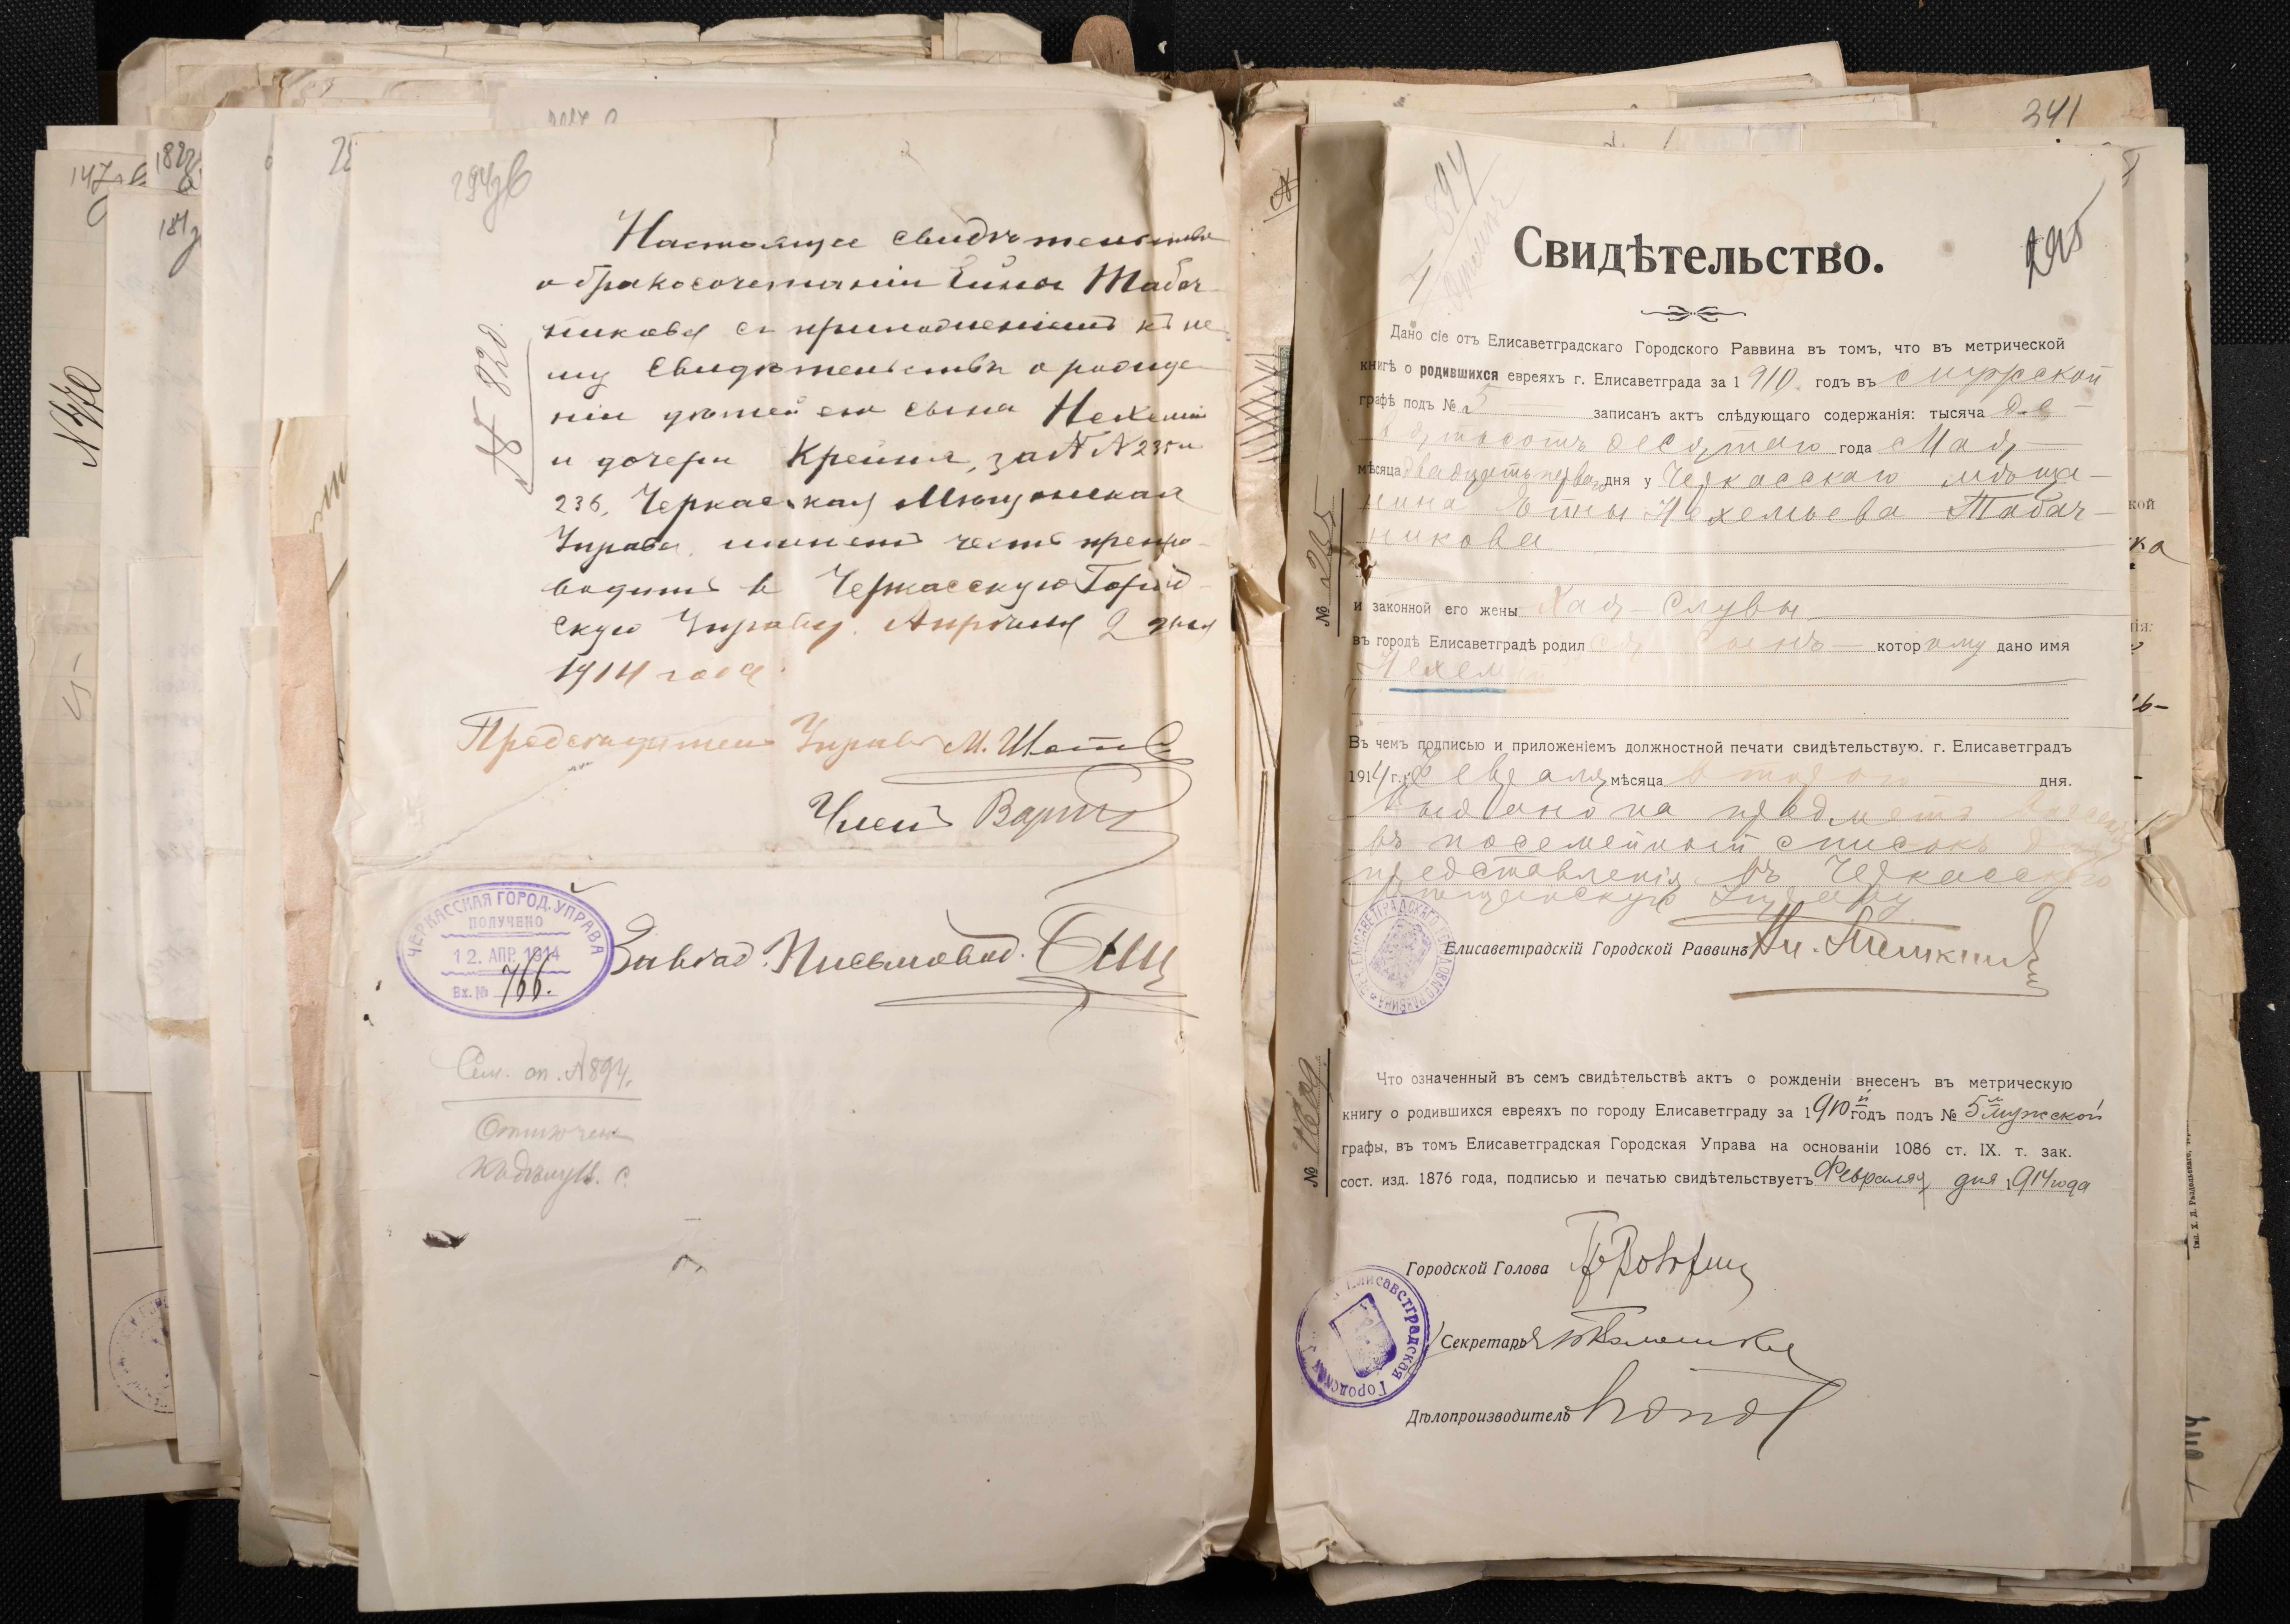 294 об
№ 820
Настоящее свидѣтельство
о бракосочетаніи Ейны Табач-
никова съ приложеніемъ къ не-
му свидѣтельствъ о рожде-
ніи дѣтей его сына Нехеміи
и дочери Крейны, за № № 235 и
236, Черкасская Мѣщанская
Управа имѣетъ честь препро-
водить въ Черкасскую Город-
скую Управу. Апрѣля 2 дня
1914 года.
Предсѣдатель Управы М.
Членъ
ЧЕРКАССКАЯ ГОРОД. УПРАВА
ПОЛУЧЕНО
12. АПР. 1914
Вх. № 766.
Завѣд. Письмовод.
Сем. сп. № 894.
147 об
182
№ 770
341
295
894
Свидѣтельство.
Дано сіе отъ Елисаветградскаго Городского Раввина въ томъ, что въ метрической
книгѣ о родившихся евреяхъ г. Елисаветграда за 1910 годъ въ мужской
графѣ подъ № 5 записанъ актъ слѣдующаго содержанія: тысяча де-
вятьсотъ десятаго года Мая
мѣсяца двадцать перваго дня у Черкасскаго мѣща-
нина Нехемьева Табач-
никова
и законной его жены Хая-Слувы
въ городѣ Елисаветградѣ родился сынъ которому дано имя
Нехемія
Въ чемъ подписью и приложеніемъ должностной печати свидѣтельствую. г. Елисаветградъ
1914 г. Февраля мѣсяца второго дня.
Выдано на предметъ внесенія
въ посемейный списокъ для
представленія въ Черкасскую
Мѣщанскую Управу
Елисаветградскій Городской Раввинъ
№ 235
Что означенный въ семъ свидѣтельствѣ актъ о рожденіи внесенъ въ метрическую
книгу о родившихся евреяхъ по городу Елисаветграду за 1910й годъ подъ № 5м мужской
графы, въ томъ Елисаветградская Городская Управа на основаніи 1086 ст. IX. т. зак.
сост. изд. 1876 года, подписью и печатью свидѣтельствуетъ Февраля дня 1914 года
Городской Голова
Секретарь
Дѣлопроизводитель